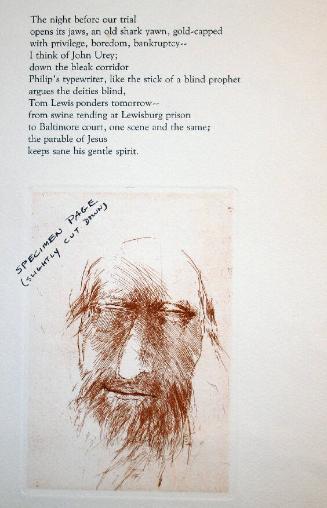 The night before our trial
opens its jaws, an old shark yawn, gold-capped
with privilege, boredom, bankruptcy--
I think of John Urey;
down the bleak corridor
Philip's typewriter, like the stick of a blind prophet
argues the deities blind,
Tom Lewis ponders tomorrow--
from swine tending at Lewisburg prison
to Baltimore court, one scene and the same;
the parable of Jesus
keeps sane his gentle spirit.
SPECIMEN PAGE
(SLIGHTLY CUT DOWN)